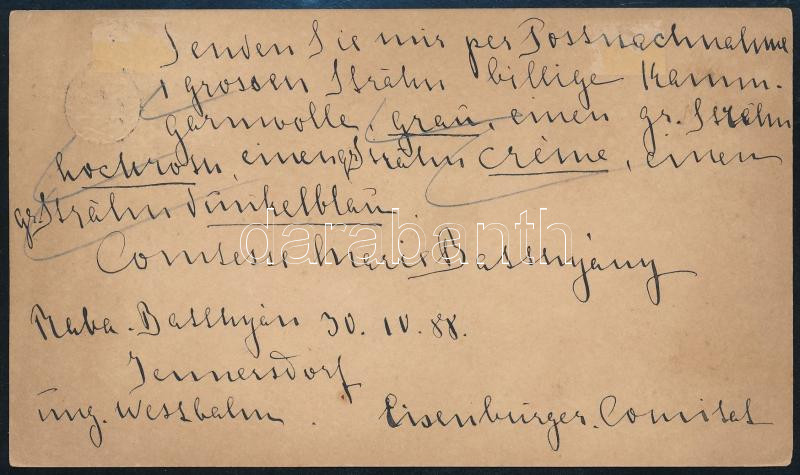 Senden Sie mir per Postnachnahme
1 grossen Strähn billige Kamm-
garnwolle, grau, einen gr. Strähn
hochrosa, einen gr Strähn crème, einen
gr. Strähn dunkelblau.
darabanth
Comtesse Marie Batthyány
Raba-Batthyán 30. IV. 88.
Jennersdorf
ung. Westbahn. Eisenburger. Comitat